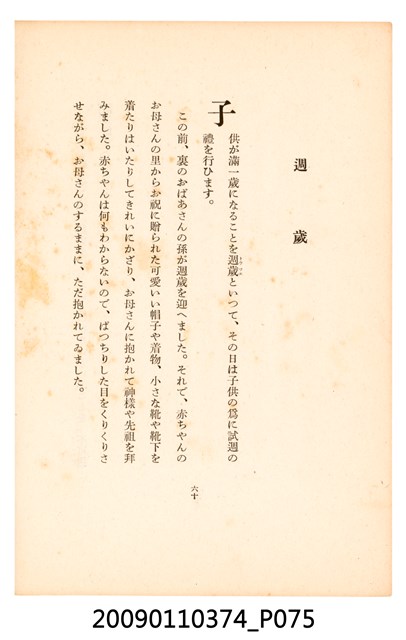 週歲
子供が滿一歲になることを週歲といつて、その日は子供の爲に試週の
禮を行ひます。
この前、裏のおばあさんの孫が週歲を迎へました。それで、赤ちやんの
お母さんの里からお祝に贈られた可愛いい帽子や着物、小さな靴や靴下を
着たりはいたりしてきれいにかざり、お母さんに抱かれて神樣や先祖を拜
みました。赤ちやんは何もわからないので、ぱつちりした目をくりくりさ
せながら、お母さんのするままに、ただ抱かれてゐました。
六十
20090110374_P075